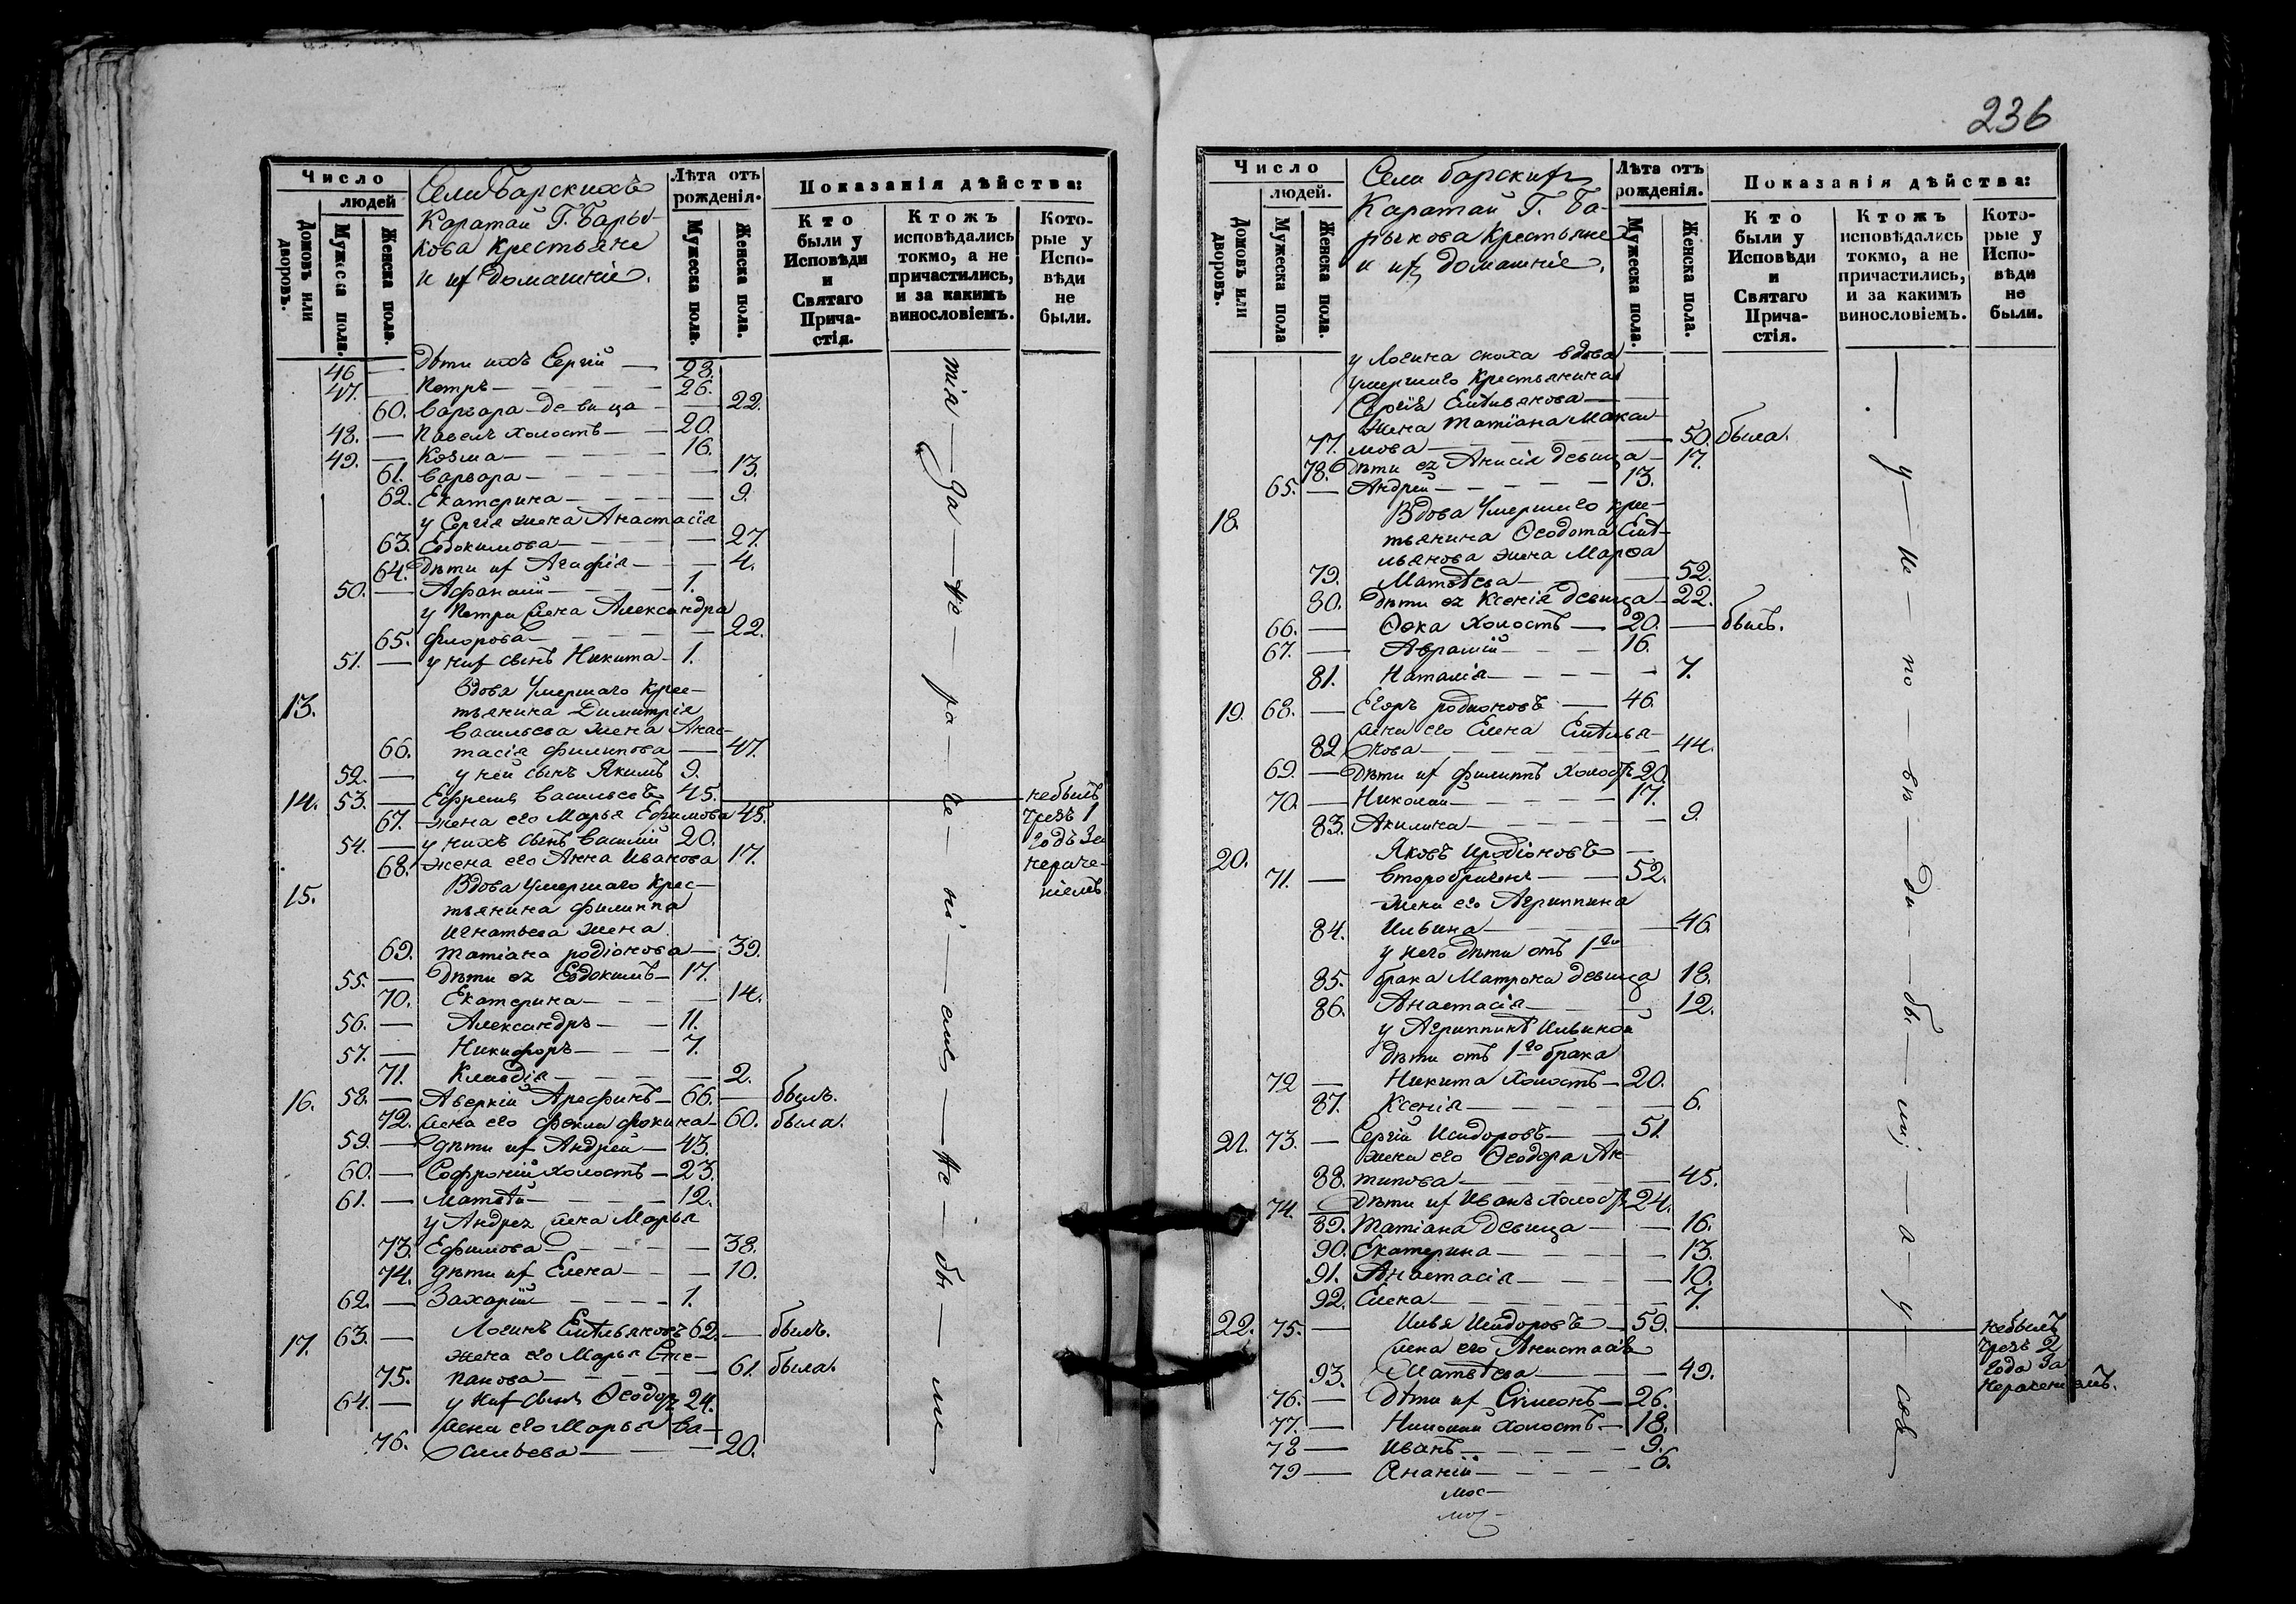 236
Число
людей
Домовъ или дворовъ.
Мужеска пола.
Женска пола.
Села Барскихъ
Каратай Г. Бары-
кова крестьяне
и их домашніе.
Лѣта отъ рожденія.
Мужеска пола.
Женска пола.
Показанія дѣйства:
Кто были у Исповѣди и Святаго Причастія.
Ктожъ исповѣдались токмо, а не причастились, и за какимъ винословіемъ.
Которые у Исповѣди не были.
46 — дѣти ихъ Сергій — 28.
47. — Петръ — 26.
60. Варвара девица — 22.
48. — Павелъ холостъ — 20.
49. — Козма — 16.
61. Варвара — 13.
62. Екатерина — 9.
у Сергія жена Анастасія
63. Евдокимова — 27.
64. дѣти их Агафія — 4.
50. — Афанасій — 1.
у Петра жена Александра
65. Флорова — 22.
51. — у них сынъ Никита — 1.
13. Вдова Умершаго Крес-
тьянина Димитрія
Васильева жена Анас-
66. тасія Филипова — 47.
52. — у ней сынъ Якимъ 9.
14. 53. — Ефремъ Васильевъ 45. — небылъ
67. жена его Марья Ефимова 45. чрезъ 1
54. — у нихъ сынъ Василій 20. годъ За
68. жена его Анна Иванова 17. нераче-
15. Вдова Умершаго Крес- ніемъ
тьянина Филиппа
Игнатьева жена
69. Татіана Родіонова — 39.
55. — дѣти ея Евдокимъ — 17.
70. Екатерина — 14.
56. — Александръ — 11.
57. — Никифоръ — 7.
71. Клавдія — 2.
16. 58. — Аверкій Арефинъ — 66. — былъ.
72. жена его Фекла Фокина — 60. была.
59. — дѣти их Андрей — 43.
60. — Софроній холостъ — 23.
61. — Матвѣй — 12.
у Андрея жена Марья
73. Ефимова — 38.
74. дѣти их Елена — 10.
62. — Захарій — 1.
17. 63. — Логинъ Емѣльяновъ 62. — былъ.
жена его Марья Сте-
75. панова — 61. была.
64. — у них сынъ Ѳеодоръ 24.
жена его Марья Ва-
76. сильева — 20.
тія — да — не — ра — че — ні — емъ — не — бы — ли
Число
людей.
Домовъ или дворовъ.
Мужеска пола
Женска пола.
Села барских
Каратай Г. Ба-
рыкова Крестьяне
и их домашніе.
Лѣта отъ рожденія.
Мужеска пола.
Женска пола.
Показанія дѣйства:
Кто были у Исповѣди и Святаго Причастія.
Ктожъ исповѣдались токмо, а не причастились, и за какимъ винословіемъ.
Которые у Исповѣди не были.
у Логина сноха вдова
умершаго Крестьянина
Сергія Емѣльянова —
жена Татіана Макси-
77. мова — 50. была.
78. дѣти ея Анисія девица — 17.
65. — Андрей — 13.
18. Вдова Умершаго крес-
тьянина Ѳеодота Емѣ-
льянова жена Марѳа
79. Матвѣева — 52.
80. дѣти ея Ксенія девица — 22.
66. — Ѳока Холостъ — 20. — былъ.
67. — Аврамій — 16.
81. Наталія — 7.
19. 68. — Егоръ родионовъ — 46.
жена его Елена Емѣлья-
82. нова — 44.
69. — дѣти их Филиппъ Холостъ 20.
70. — Николай — 17.
83. Акилина — 9.
20. Яковъ Иродіоновъ —
71. — второбрачен — 52.
жена его Агриппина
84. Ильина — 46.
у него дѣти отъ 1го
85. брака Матрона девица 18.
86. Анастасія — 12.
у Агриппинѣ Ильиной
дѣти отъ 1го брака
72 — Никита Холостъ — 20.
87. Ксенія — 6.
21. 73. — Сергій Исидоровъ — 51.
жена его Ѳеодора Ан-
88. типова — 45.
74. — дѣти их Иванъ Холостъ 24.
89. Татіана Девица — 16.
90. Екатерина — 13.
91. Анастасія — 10.
92. Елена — 7.
22. 75. — Илья Исидоровъ — 59. — небылъ
жена его Анастасія чрезъ 2
93. Матвѣева — 49. года За
76. — Дѣти их Симеонъ — 26. нераченіемъ.
77. — холостъ — 18.
78 — Иванъ — 9.
79 — Ананій — 6.
у — ис — по — вѣ — ди — бы — ли; — а — у — свя